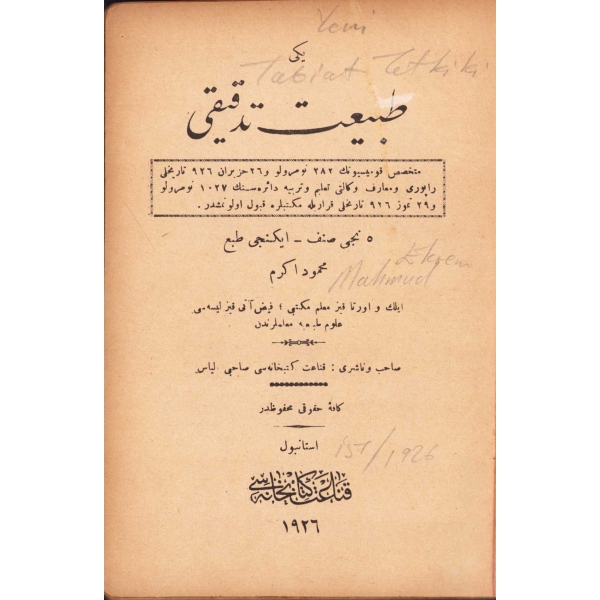 Yeni
یکی
Tabiat Tetkiki
طبیعت تدقیقی
متخصص قومیسیونك ٢٨٢ نومرولو و ٢٦ حزیران ٩٢٦ تاریخلی
راپوری و معارف وکالتی تعلیم و تربیه دائره‌سنك ١٠٢٧ نومرولو
و ٢٩ تموز ٩٢٦ تاریخلی قراریله مکتبلره قبول اولونمشدر .
٥ نجی صنف - ایکنجی طبع
محمود اکرم
Ekrem
Mahmud
ایلك و اورتا قیز معلم مکتبی ؛ فیض آتی قیز لیسه‌سی
علوم طبیعیه معلملرندن
صاحب و ناشری : قناعت کتبخانه‌سی صاحبی الیاس
کافهٔ حقوقی محفوظدر
استانبول
İST/1926
قناعت کتابخانه‌سی
١٩٢٦